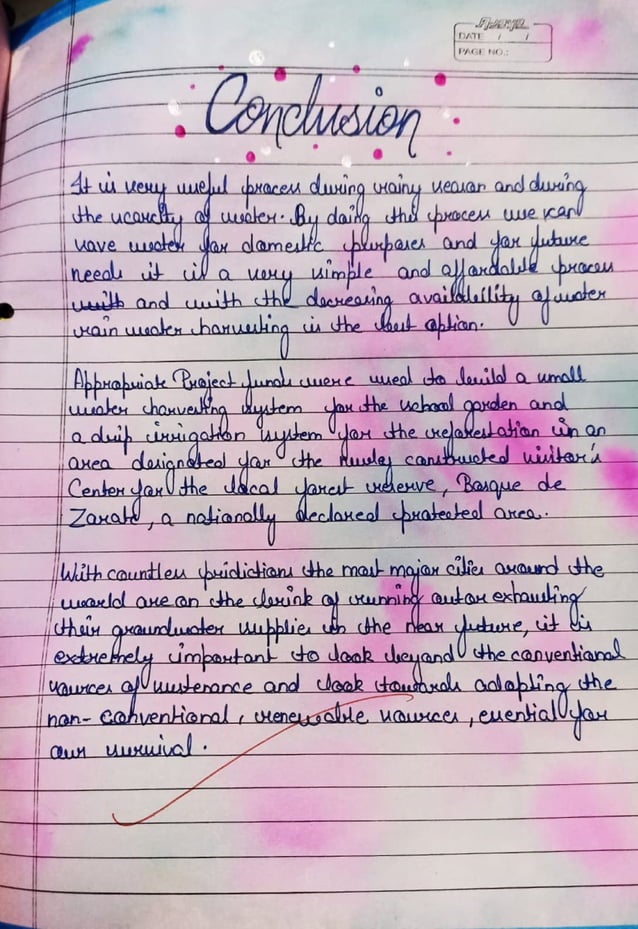 DATE / /
PAGE NO.:
Conclusion
It is very useful process during rainy season and during
the scarcity of water. By doing this process we can
save water for domestic purposes and for future
needs it is a very simple and affordable process
with and with the decreasing availability of water
rain water harvesting is the best option.
Appropriate Project funds were used to build a small
water harvesting system for the school garden and
a drip irrigation system for the reforestation in an
area designated for the newley constructed visitor's
Center for the local forest reserve, Bosque de
Zarate, a nationally declared protected area.
With countless pridictions the most major cities around the
world are on the brink of running out or exhausting
their groundwater supplies in the near future, it is
extremely important to look beyond the conventional
sources of sustenance and look towards adopting the
non- conventional, renewable sources, essential for
our survival.